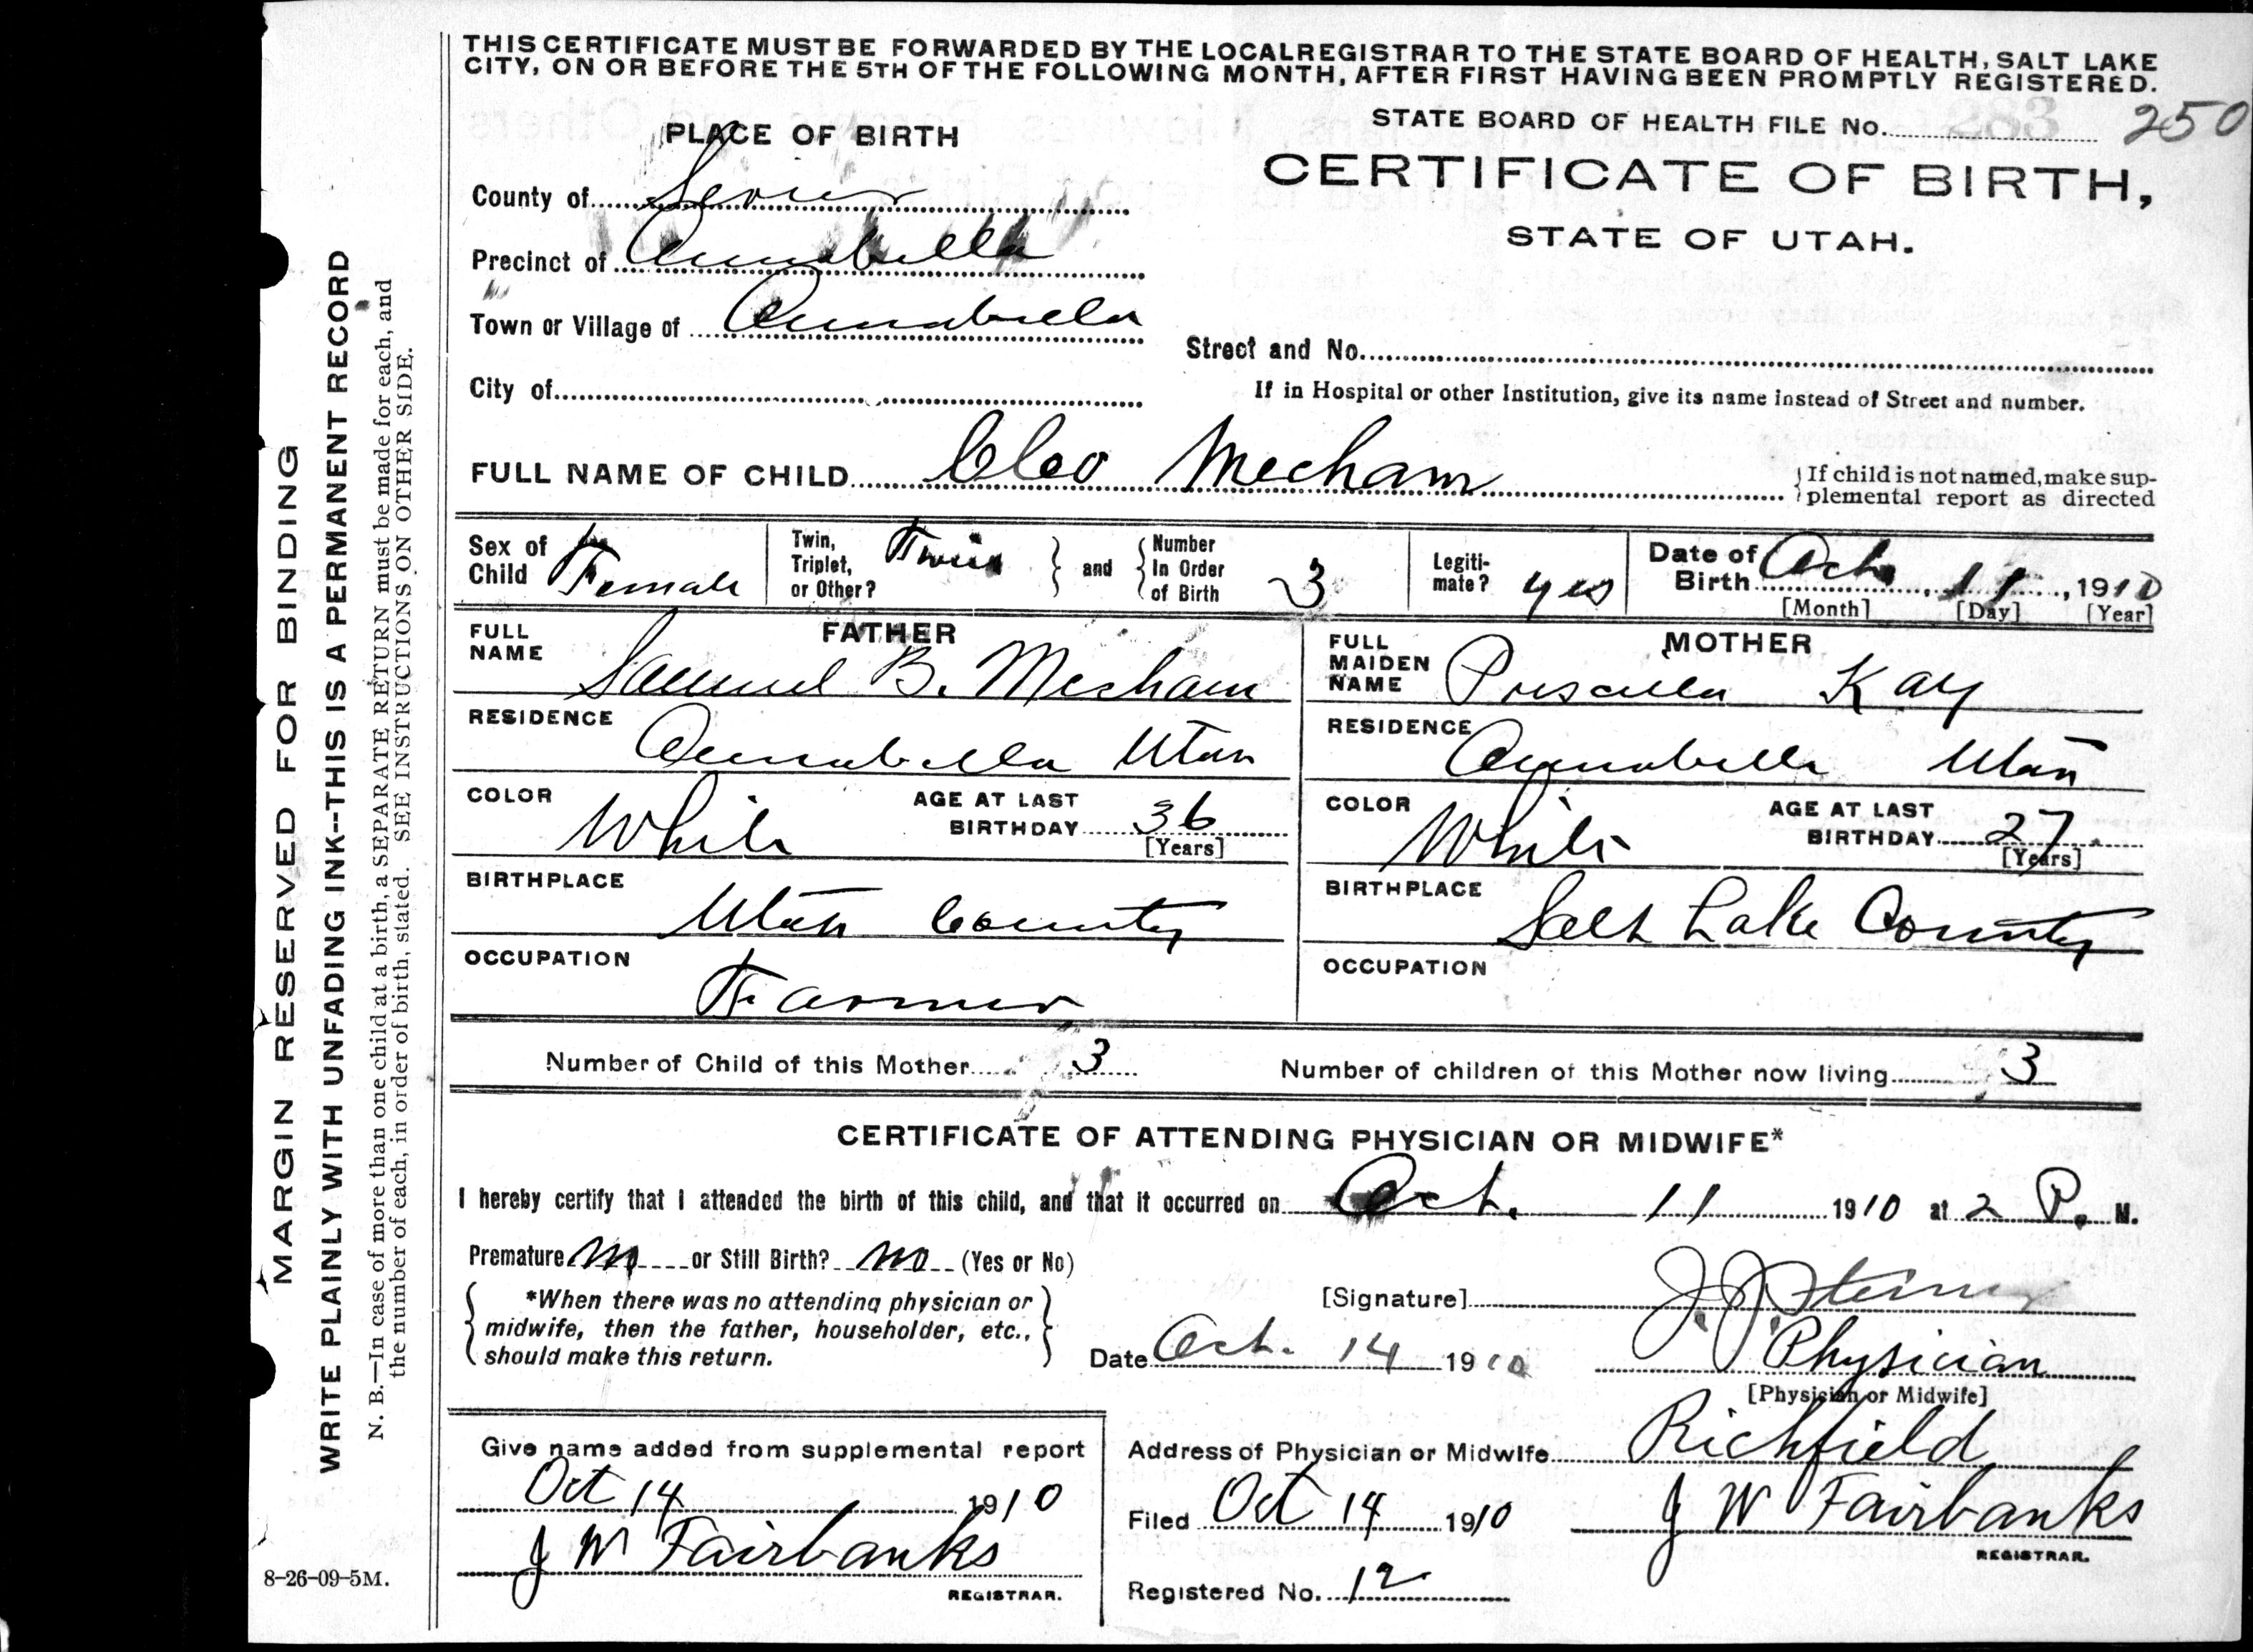 THIS CERTIFICATE MUST BE FORWARDED BY THE LOCAL REGISTRAR TO THE STATE BOARD OF HEALTH, SALT LAKE
CITY, ON OR BEFORE THE 5TH OF THE FOLLOWING MONTH, AFTER FIRST HAVING BEEN PROMPTLY REGISTERED.
STATE BOARD OF HEALTH FILE No. 283 250
PLACE OF BIRTH
CERTIFICATE OF BIRTH,
STATE OF UTAH.
County of Sevier
Precinct of Annabella
Town or Village of Annabella
Street and No.
City of
If in Hospital or other Institution, give its name instead of Street and number.
FULL NAME OF CHILD Cleo Mecham
If child is not named, make sup-
plemental report as directed
Sex of Child Female
Twin, Triplet, or Other? Twin
and Number In Order of Birth 3
Legiti-mate? yes
Date of Birth Oct. 11, 1910
[Month] [Day] [Year]
FATHER
FULL NAME Samuel B. Mecham
RESIDENCE Annabella Utah
COLOR White
AGE AT LAST BIRTHDAY 36
[Years]
BIRTHPLACE Utah County
OCCUPATION Farmer
MOTHER
FULL MAIDEN NAME Priscilla Kay
RESIDENCE Annabella Utah
COLOR White
AGE AT LAST BIRTHDAY 27
[Years]
BIRTHPLACE Salt Lake County
OCCUPATION
Number of Child of this Mother 3
Number of children of this Mother now living 3
CERTIFICATE OF ATTENDING PHYSICIAN OR MIDWIFE*
I hereby certify that I attended the birth of this child, and that it occurred on Oct. 11 1910 at 2 P. M.
Premature no or Still Birth? no (Yes or No)
*When there was no attending physician or
midwife, then the father, householder, etc.,
should make this return.
[Signature] J. J. Steiner
Date Oct. 14 1910
Physician
[Physician or Midwife]
Give name added from supplemental report
Oct 14 1910
J W Fairbanks
REGISTRAR.
Address of Physician or Midwife Richfield
Filed Oct 14 1910
J W Fairbanks
REGISTRAR.
Registered No. 12
8-26-09-5M.
MARGIN RESERVED FOR BINDING
WRITE PLAINLY WITH UNFADING INK--THIS IS A PERMANENT RECORD
N. B.—In case of more than one child at a birth, a SEPARATE RETURN must be made for each, and
the number of each, in order of birth, stated. SEE INSTRUCTIONS ON OTHER SIDE.